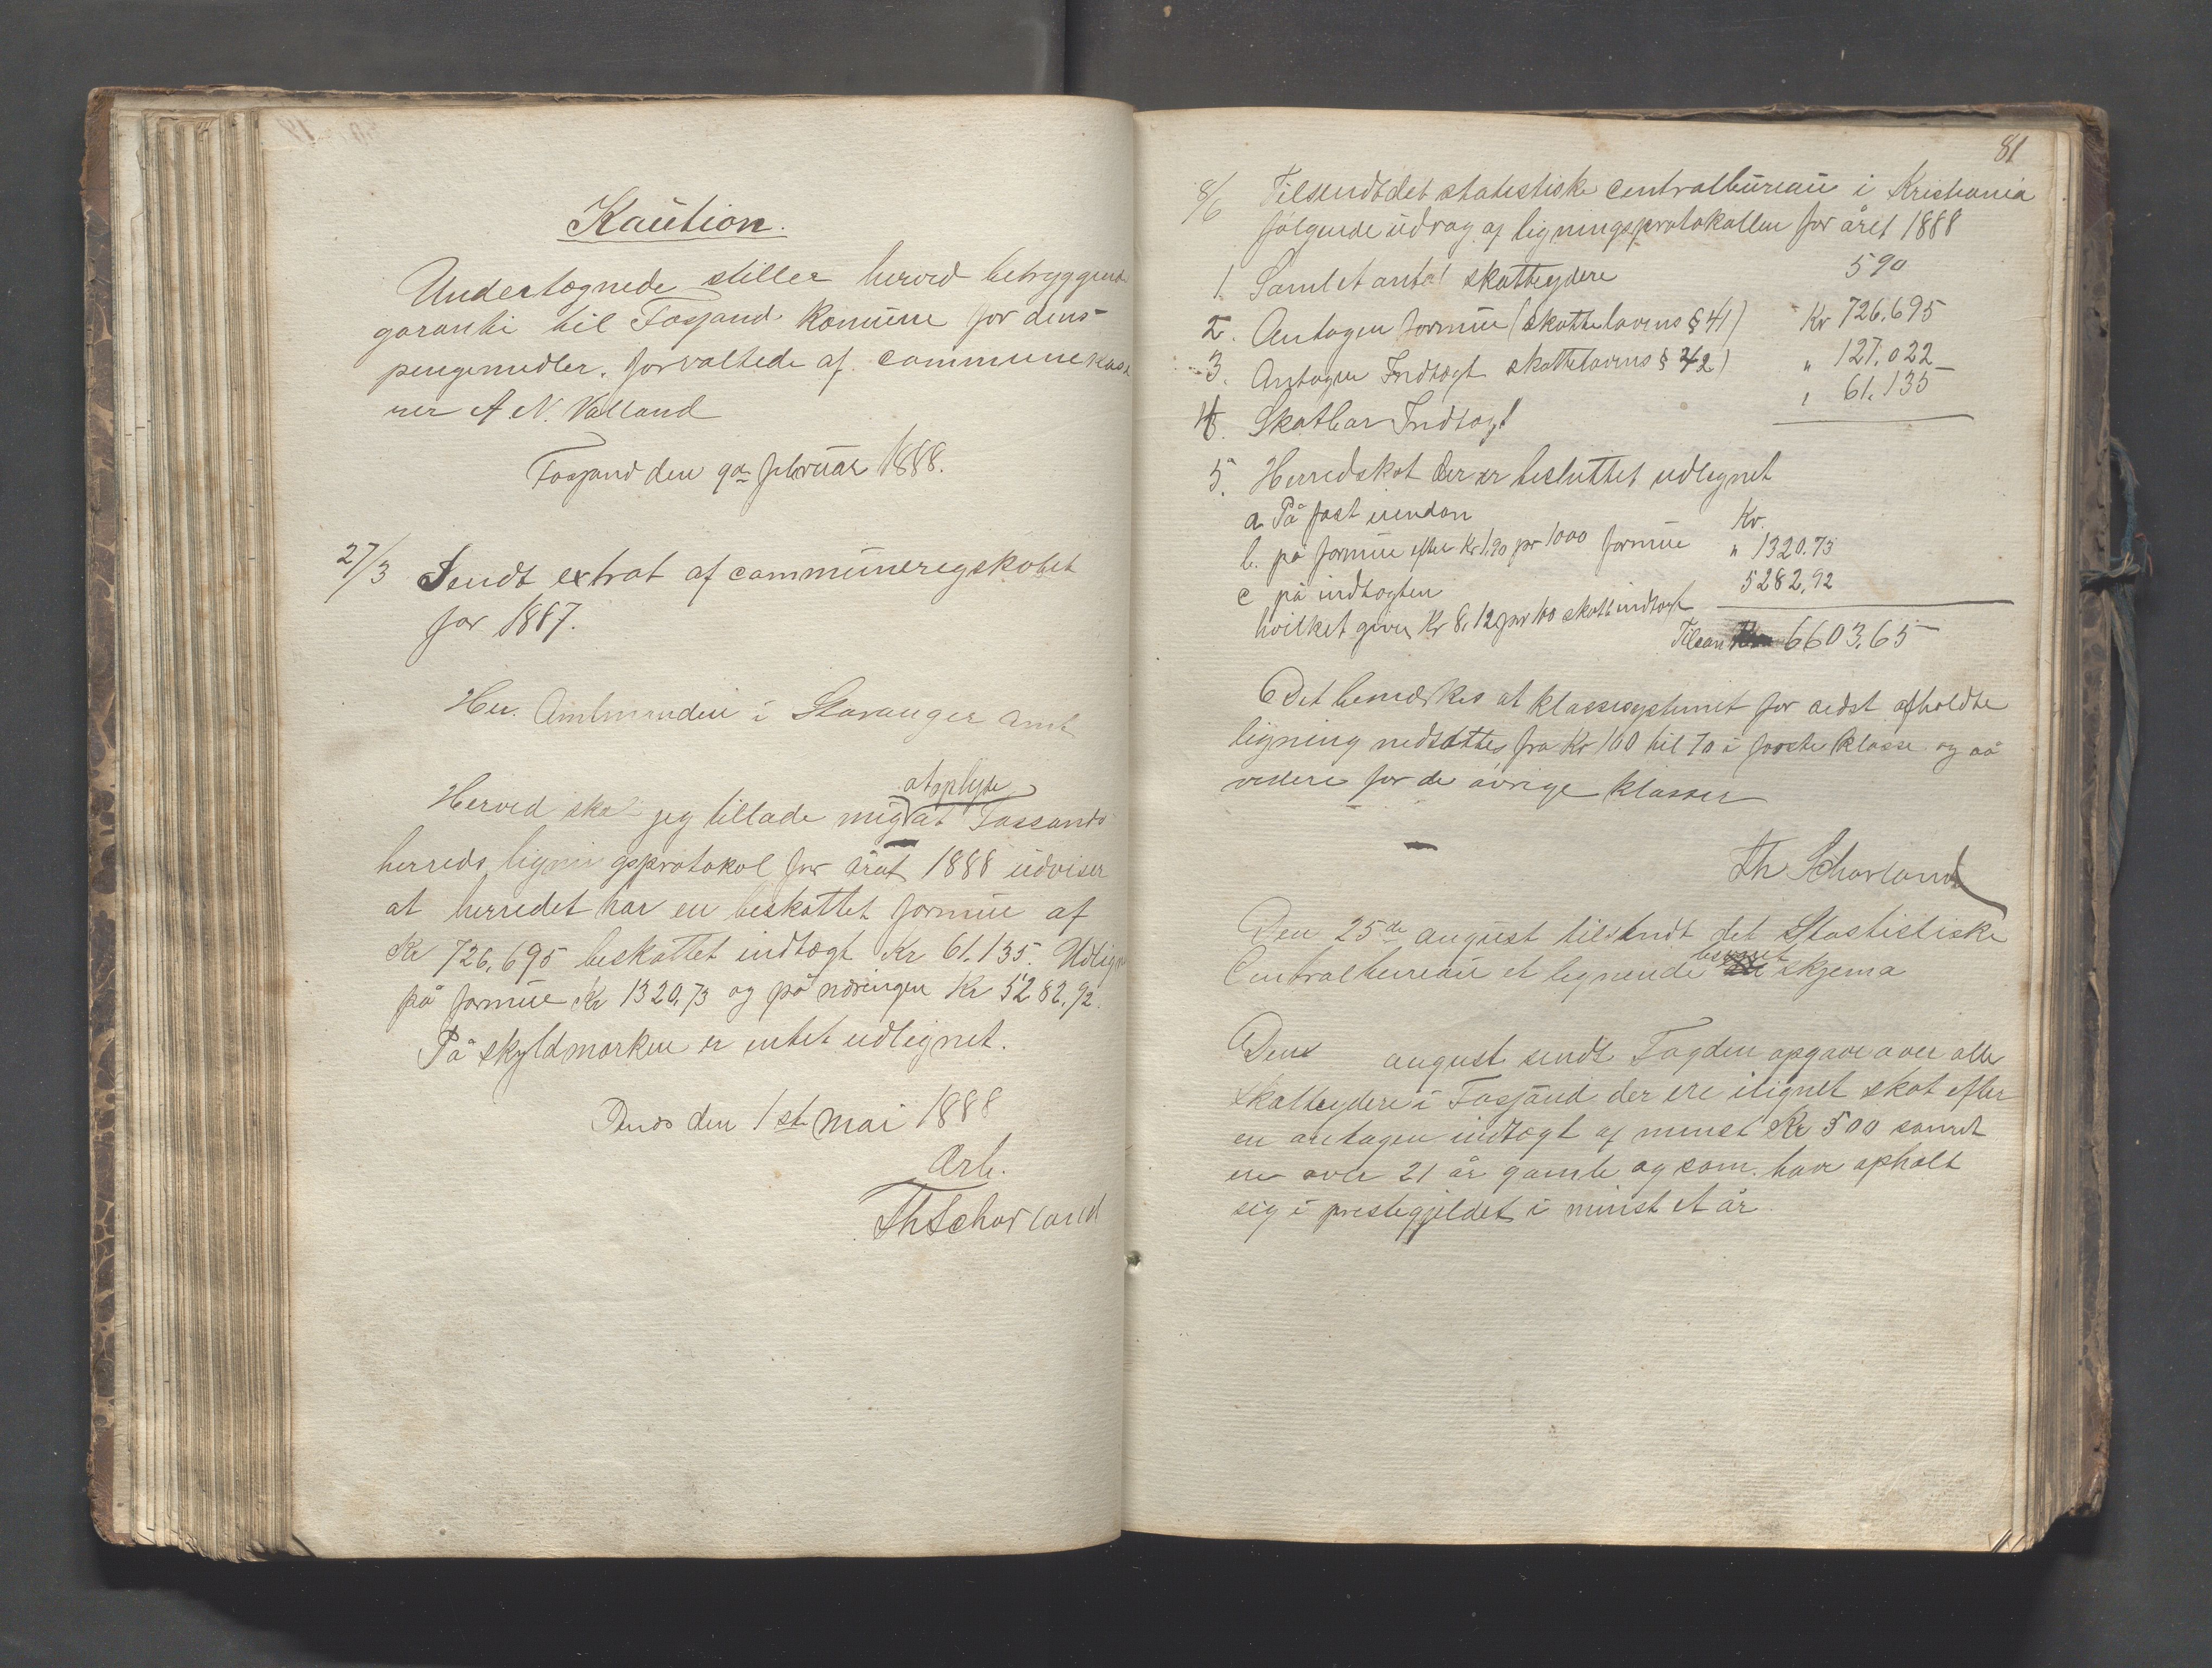 Kaution.
Undertegnede stiller herved betryggende
garanti til Fossand Komune for dens
pengemidler, forvaltede af commune kasse
rer A N. Valland
Fossand den 9de februar 1888.
27/3 Sendt extrat af communeregskabet
for 1887.
Hr. Amtmanden i Stavanger amt
at oplyse
Herved skal jeg tillade mig at Fossands
herreds ligningsprotokol for året 1888 udviser
at herredet har en beskattet formue af
Kr 726,695 beskattet indtægt Kr 61.135. Udlignet
på formue Kr 1320,73 og på næringen Kr 5282,92.
På skyldmarken er intet udlignet.
den 1st mai 1888
Ærb.
Th Schovland
81
8/6 Tilsendt det statistiske centralbureau i Kristiania
følgende udrag af ligningsprotokollen for året 1888
1. Samlet antal skatteydere 590
2. Antagen formue (skattelovens § 41) Kr 726,695
3. Antagen Indtægt skattelovens § 42) " 127,022
4. Skatbar Indtægt " 61.135
5. Herredskat der er besluttet udlignet
a. På fast eiendom Kr.
b. på formue efter Kr 1,90 pr 1000 formue " 1320.73
c på indtægten 5282,92
hvilket giver Kr 8,12 pr 100 skatb indtægt
Tilsam 6603,65
Det bemærkes at klassesystemet for sidst afholdte
ligning nedsattes fra Kr 100 til 70 i første klasse og så
videre for de øvrige klasser
Th Schovland
Den 25de august tilsendt det Stastistiske
Centralbureau et lignende skjema
Den august sendt Fogden opgave over alle
skatteydere i Fossand der ere ilignet skat efter
en antagen indtægt af minst Kr 500 samt
ere over 21 år gamle og som have opholt
sig i prestegjeldet i minst et år.